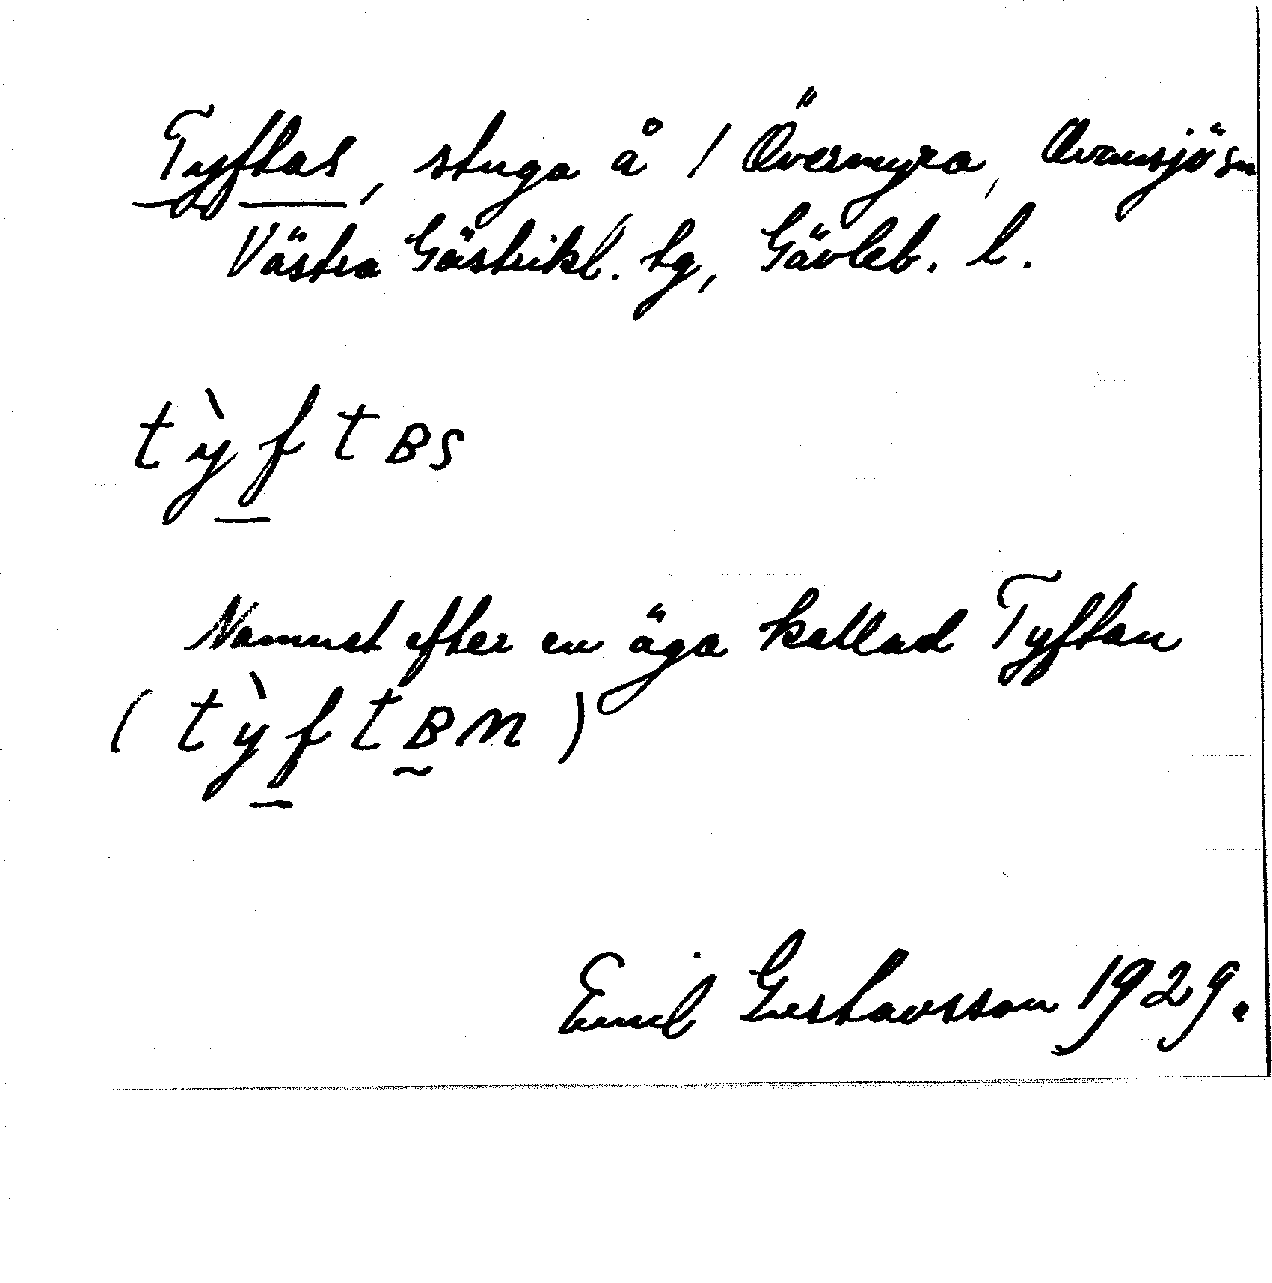 Tyftas, stuga å 1 Övermyra, Ovansjö sn
Västra Gästrikl. tg, Gävleb. l.
tỳftʙs
Namnet efter en äga kallad Tyftan
(tỳftʙn)
Emil Gustavsson 1929.